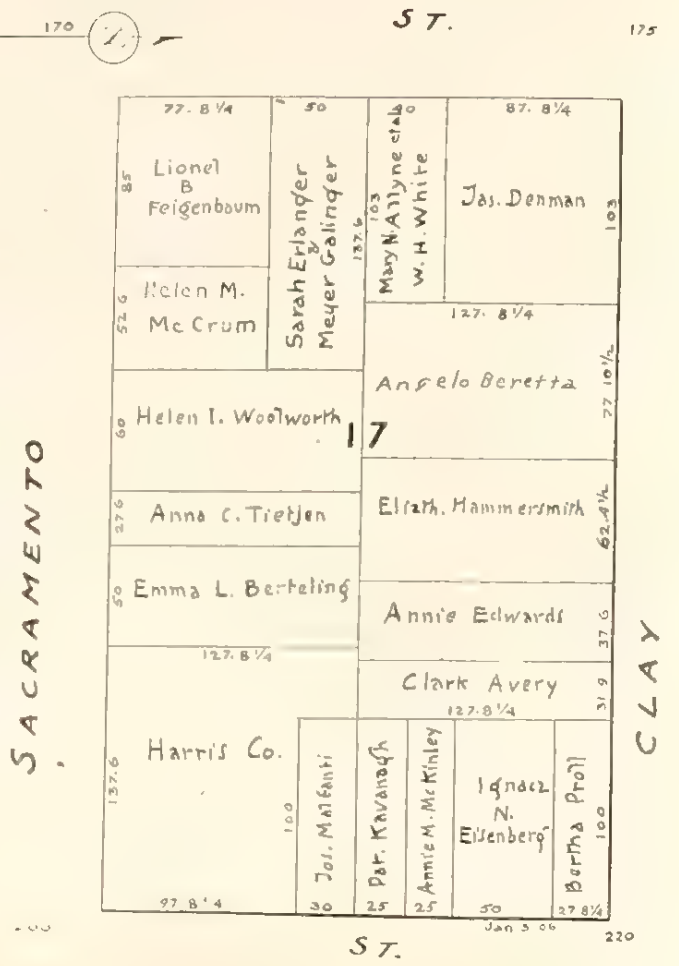 170
ST.
175
77. 8 1/4
50
40
87. 8 1/4
85
Lionel
B
Feigenbaum
Sarah Erlanger
&
Meyer Galinger
137.6
103
Mary N. Allyne etal
W. H. White
Jas. Denman
103
52 6
Helen M.
Mc Crum
127. 8 1/4
Angelo Beretta
77 10 1/2
60
Helen I. Woolworth
17
27 6
Anna C. Tietjen
Elizth. Hammersmith
62.4 1/2
50
Emma L. Berteling
Annie Edwards
37 6
SACRAMENTO
CLAY
127. 8 1/4
Clark Avery
31 9
127.8 1/4
137.6
Harris Co.
100
Jos. Malfanti
Pat. Kavanagh
Annie M. McKinley
Ignacz
N.
Eisenberg
Bertha Proll
100
97 8 1/4
30
25
25
50
27 8 1/4
Jan 5 06
220
ST.